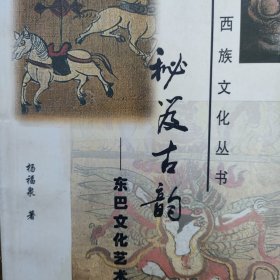 西族文化丛书
秘笈古韵
——东巴文化艺术
杨福泉 著